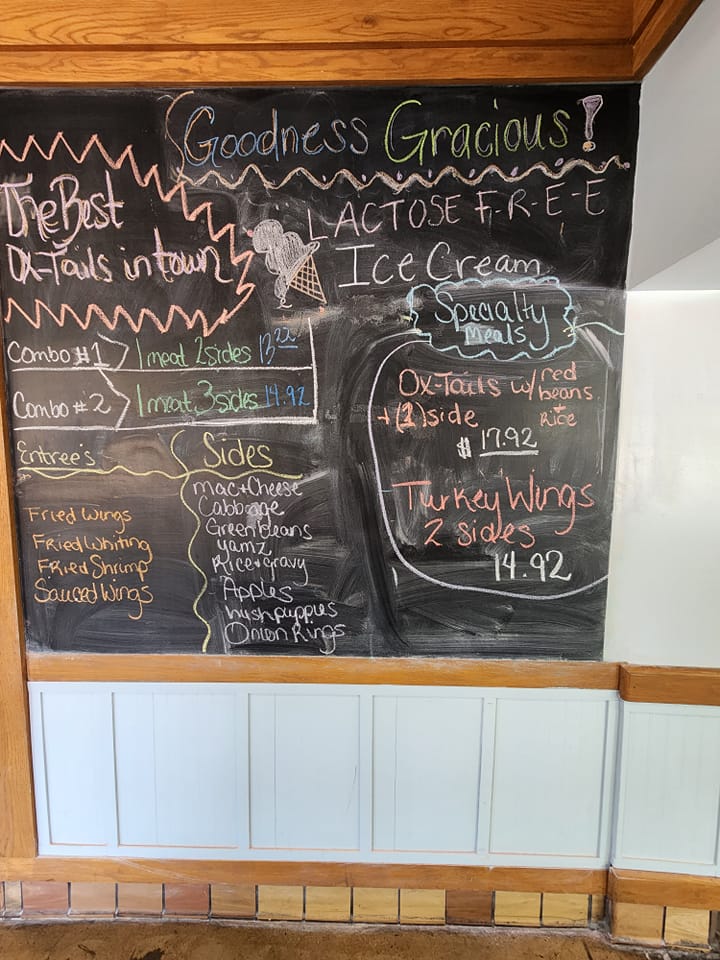 Goodness Gracious!
The Best
Ox-Tails in town
LACTOSE F-R-E-E
Ice Cream
Combo #1 1 meat 2 sides 13.22
Combo #2 1 meat 3 sides 14.92
Entree's
Fried Wings
Fried Whiting
Fried Shrimp
Sauced Wings
Sides
mac+Cheese
Cabbage
Green beans
yamz
Rice+gravy
Apples
hushpuppies
Onion Rings
Specialty
Meals
Ox-Tails w/ red
beans
+
Rice
+ (1) side
$ 17.92
Turkey Wings
2 sides
14.92